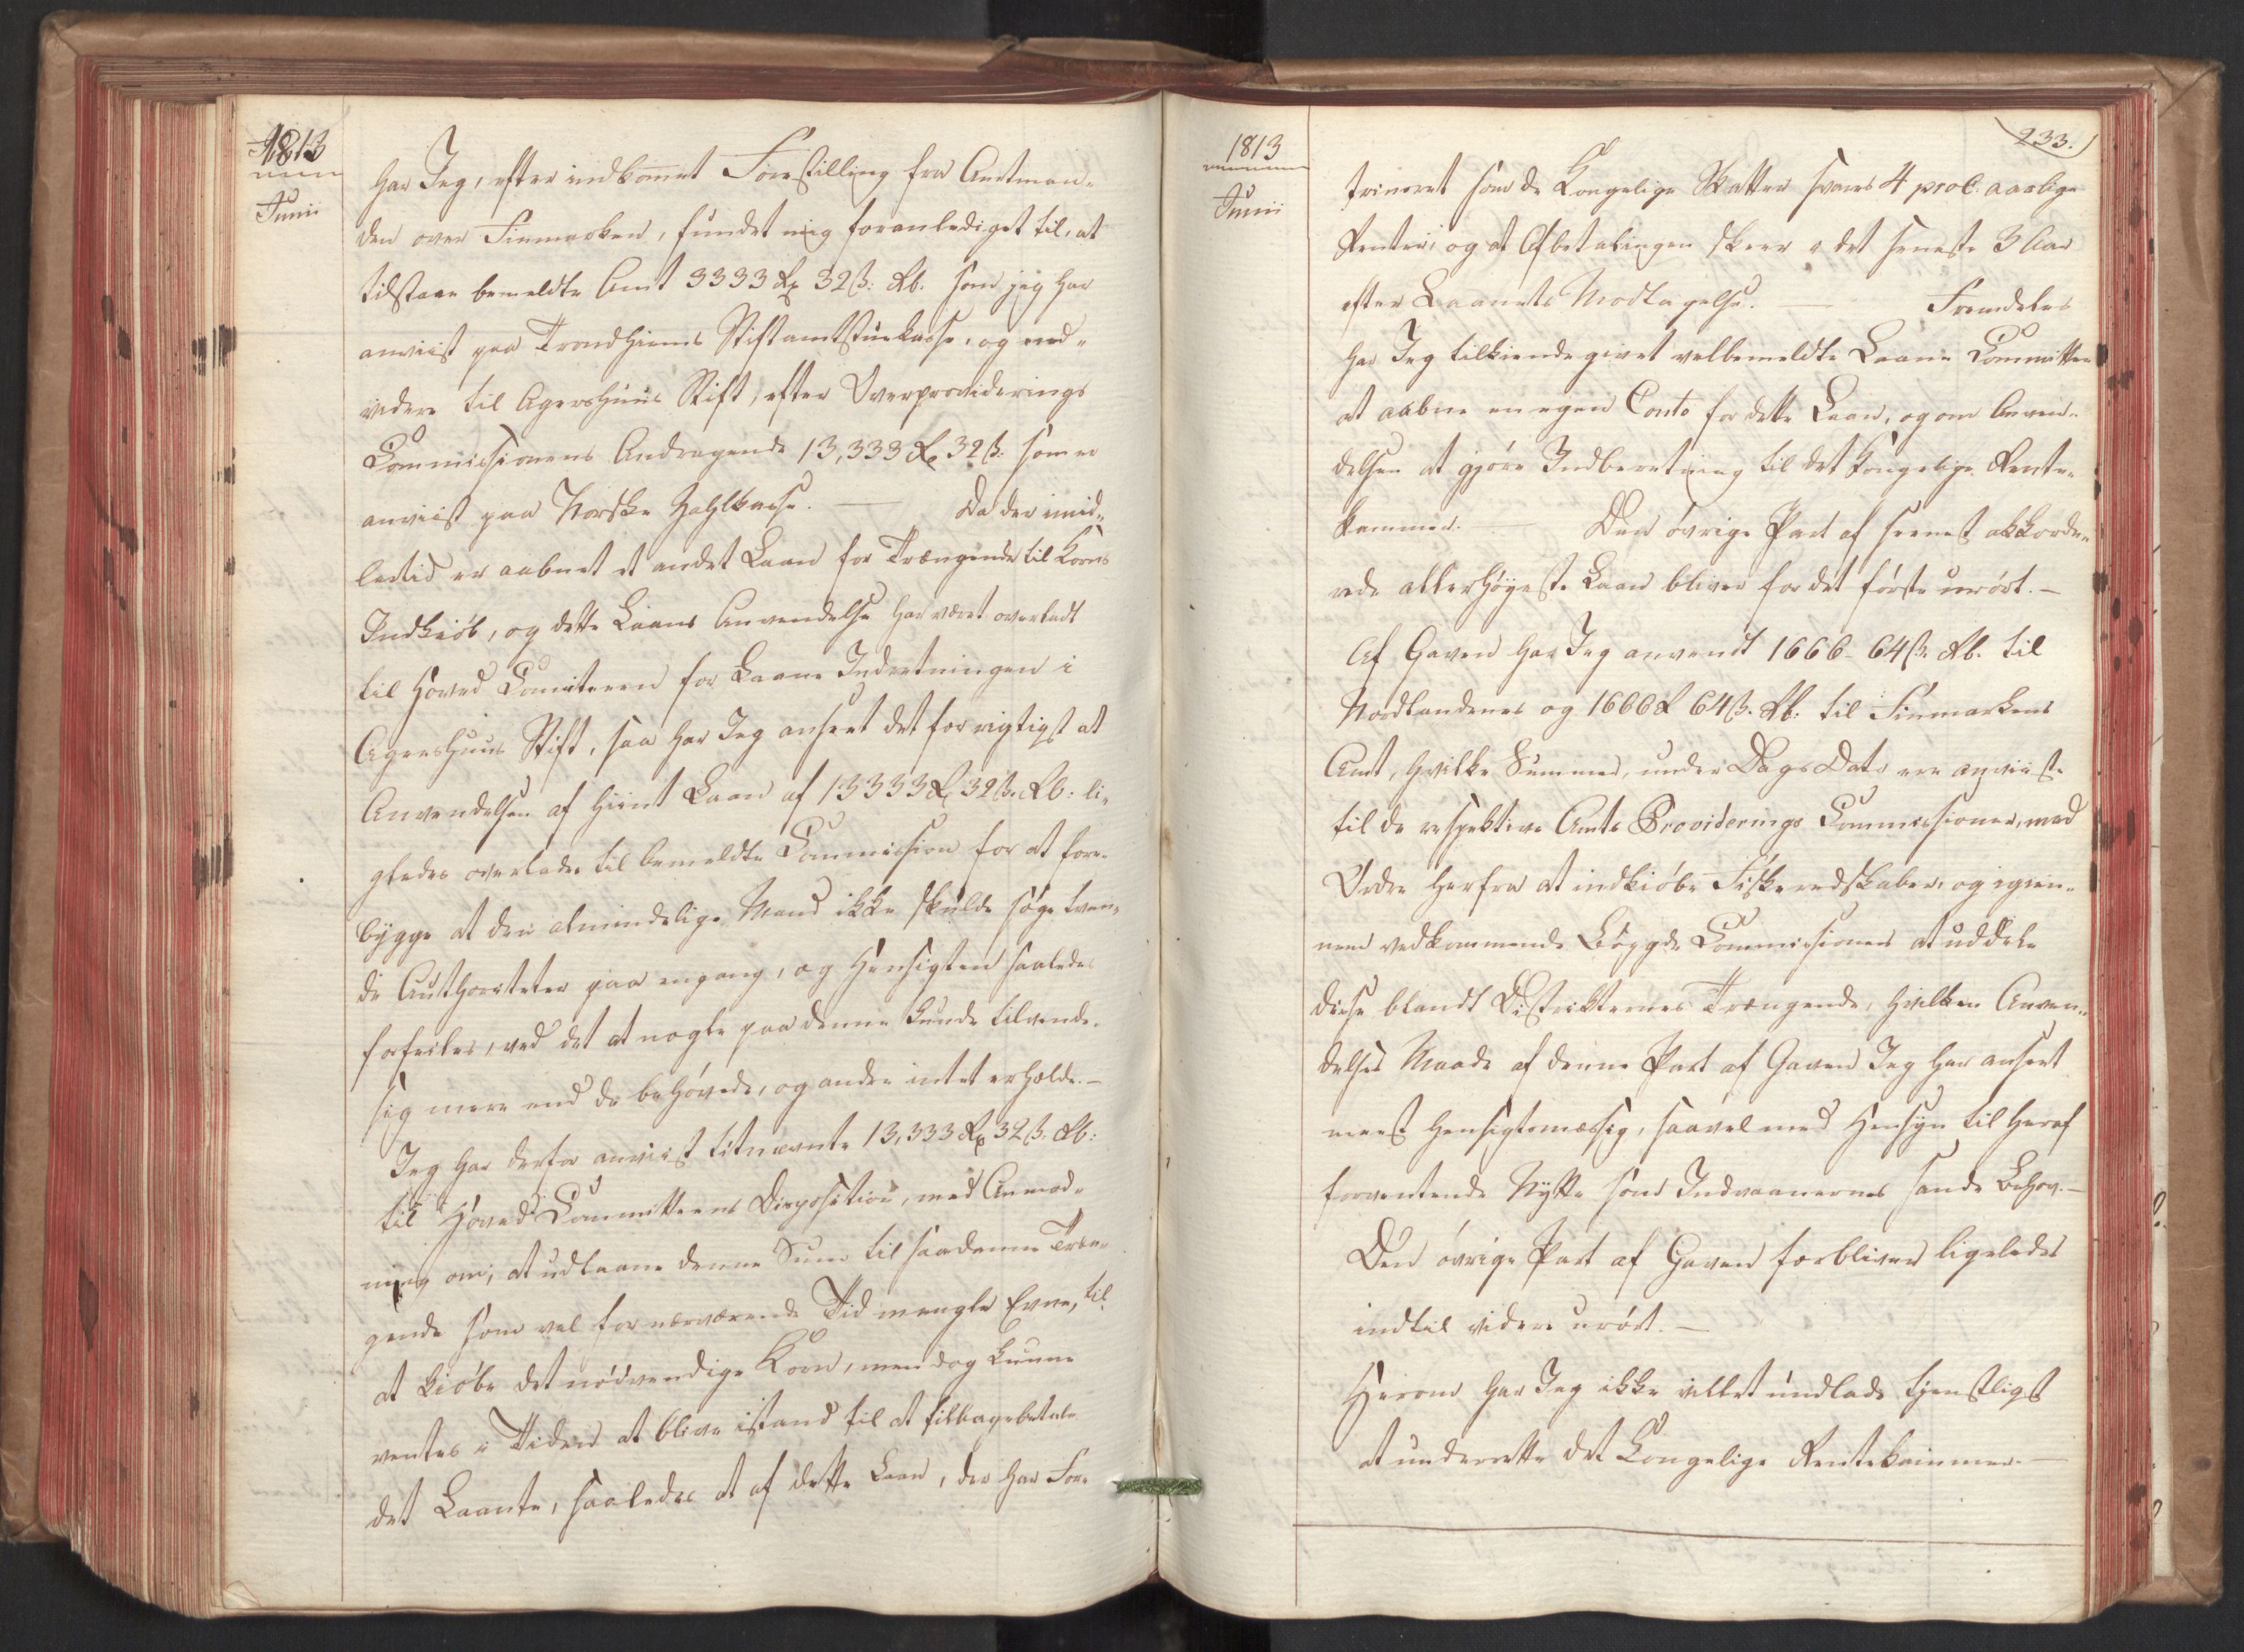 1813
Junii
har Jeg, efter indkommet Forestilling fra Amtman-
den over Finmarken, fundet mig foranlediget til, at
tilstaae bemeldte Amt 3333 Rd 32 ß: Rb. som jeg har
anviist paa Trondhiems Stiftamtstuekasse, og end-
videre til Agershuus Stift, efter Overproviderings
Commissionens Andragende 13,333 Rd 32 ß: som er
anviist paa Norske Zahlkasse. — Da der imid-
lertid er aabnet et andet Laan for Trængende til Korns
Indkiøb, og dette Laans Anvendelse har været overladt
til Hoved Comiteen for Laane Indretningen i
Agershuus Stift, saa har Jeg anseet det for rigtigst at
Anvendelsen af hiint Laan af 13333 Rd 32 ß. Rb: li-
gledes overlades til bemeldte Commission for at fore-
bygge at den almindelige Mand ikke skulde søge tven-
de Authoriteter paa engang, og Hensigten saaledes
forfeiles, ved det at nogle paa denne Kunde tilvende
sig mere end de behøvede, og andre intet erholde. —
Jeg har derfor anviist titnævnte 13,333 Rd 32 ß: Rb:
til Hoved Committeens Disposition, med Anmod-
ning om, at udlaane denne Sum til saadanne Træn-
gende som vel for nærværende Tid mangle Evne, til
at kiøbe det nødvendige Korn, men dog kunne
ventes i Tiden at blive istand til at tilbagebetale
det Laante, saaledes at af dette Laan, der har For-
1813
Junii
233.
trinsret som de Kongelige Skatter svares 4 proC. aarlige
Renter, og at Afbetalingen skeer i det seneste 3 Aar
efter Laanets Modtagelse. — Fremdeles
har Jeg tilkiendegivet velbemeldte Laane Committee
at aabne en egen Conto for dette Laan, og om Anven-
delsen at gjøre Indberetning til det Kongelige Rente-
kammer. Den øvrige Part af seenest akkorde-
rede allerhøyeste Laan bliver for det første urørt. —
Af Gaven har Jeg anvendt 1666 - 64 ß. Rb. til
Nordlandenes og 1666 Rd 64 ß. Rb: til Finmarkens
Amt, hvilke Summer, under Dags Dato ere anviiste
til de respektive Amts Providerings Commissioner, med
Ordre herfra at indkiøbe Fiskeredskaber, og igien-
nem vedkommende Bøygde Commissioner at uddele
disse blandt Distrikternes Trængende, hvilken Anven-
delses Maade af denne Part af Gaven Jeg har anseet
meest hensigtsmæssig, saavel med Hensyn til heraf
forventende Nytte som Indvaanernes sande Behov. —
Den øvrige Part af Gaven forbliver ligeledes
indtil videre urørt. —
Herom har Jeg ikke villet undlade tjenstligst
at underrette det Kongelige Rentekammer. —